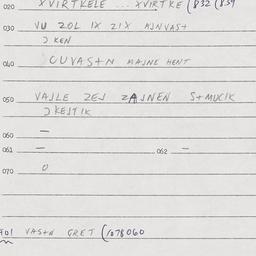 020 XVIRTKELE ... XVIRTKE (832 (839
030 VU ZOL IX ZIX AJNVAST
JKEN
040 OUVASTN MAJNE HENT
050 VAJLE ZEJ ZAJNEN STMUCIK
JKEJTIK
060 —
061 — 062 —
070 0
701 VASTN GRET (1078060